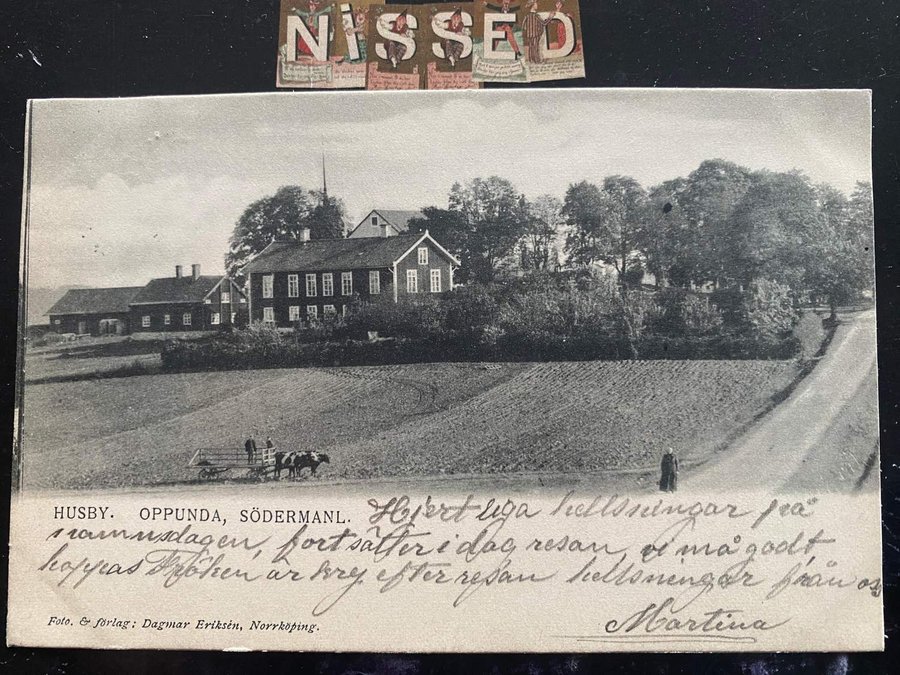 NiSSED
HUSBY. OPPUNDA, SÖDERMANL. Hjertliga hellsningar på
namnsdagen, fortsätter i dag resan, vi må godt
hoppas Fröken är kry efter resan hellsningar från oss
Martina
Foto. & förlag: Dagmar Eriksén, Norrköping.